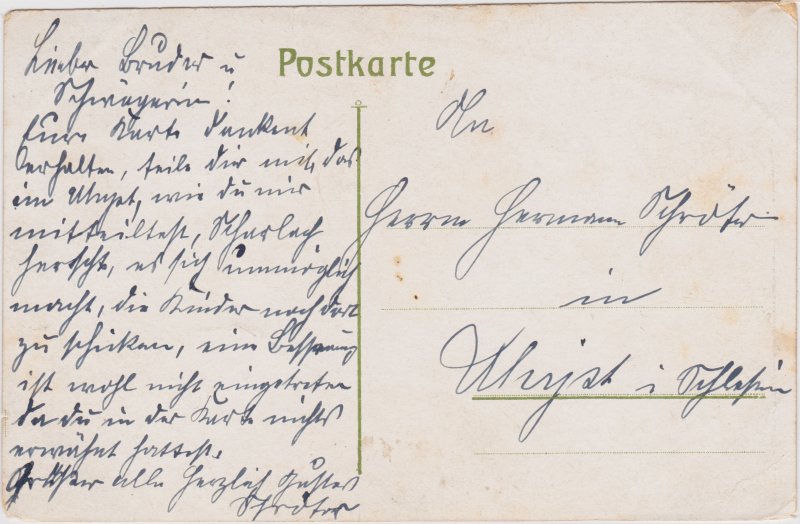 Postkarte
Lieber Bruder u
Schwägerin!
Eure Karte dankent
erhalten, teile dir mit, das
im Uhyst, wie du mir
mitteiltest, Scharlach
herscht, es sich unmöglich
macht, die Kinder nach dort
zu schicken, eine Bessrung
ist wohl nicht eingetreten
da du in der Karte nichts
erwähnt hattest.
Grüßen alle herzlich Gustav
Schröter
An
Herrn Hermann Schröter
in
Uhyst i Schlesien